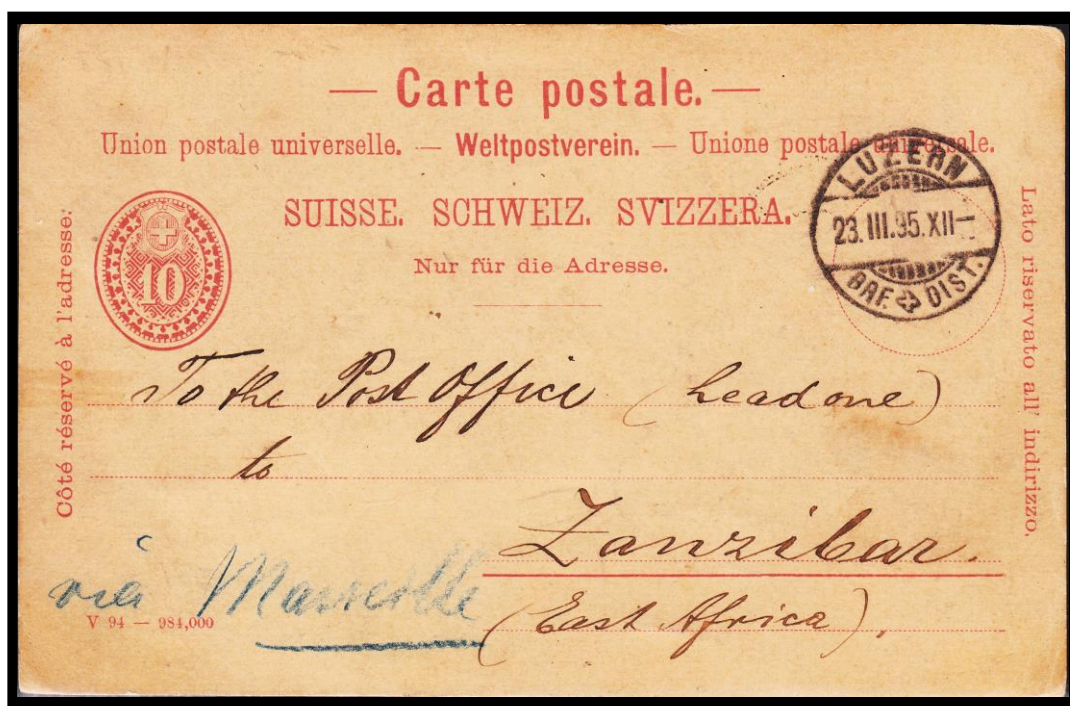 — Carte postale. —
Union postale universelle. — Weltpostverein. — Unione postale universale.
SUISSE. SCHWEIZ. SVIZZERA.
Nur für die Adresse.
Côté réservé à l'adresse.
10
LUZERN
23.III.95.XII
BRF DIST.
Lato riservato all' indirizzo.
To the Post Office (headone)
to
Zanzibar.
(East Africa).
via Marseille
V 94 — 984,000